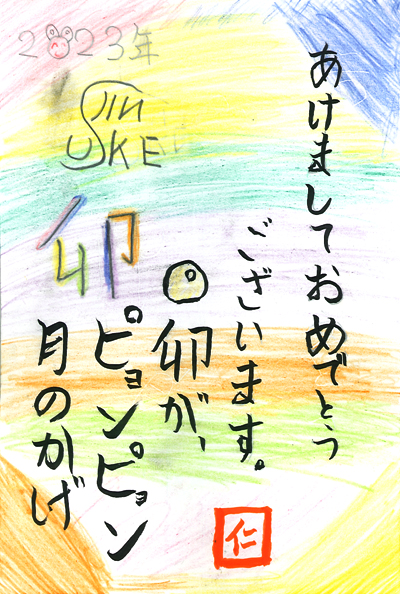 2023年
JIN
USKE
卯
あけまして おめでとう
ございます。
卯が、
ピョンピョン
月のかげ
仁